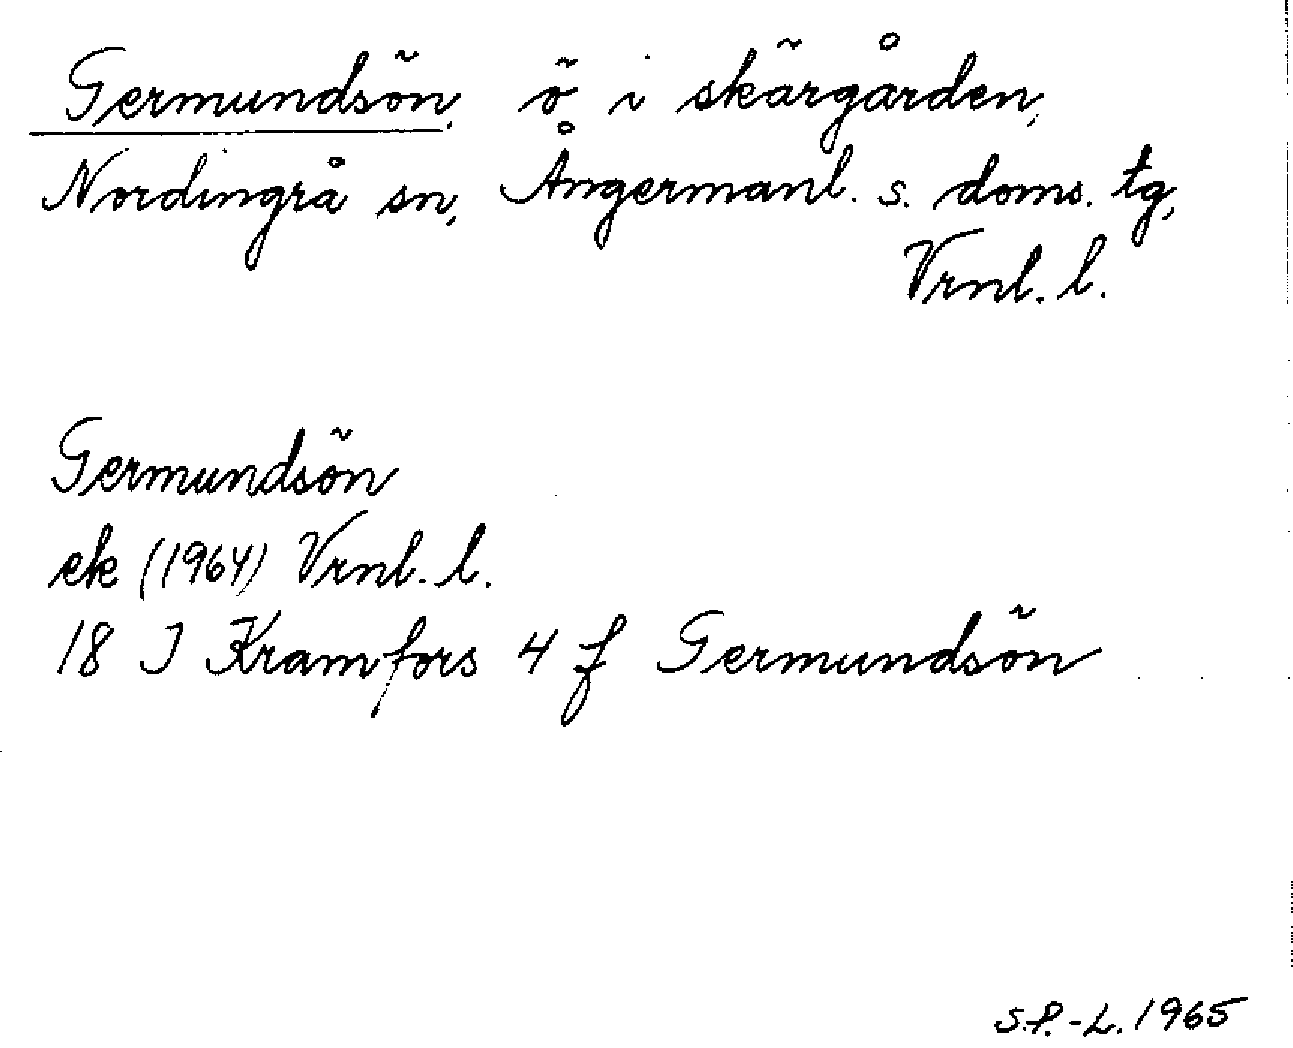 Germundsön, ö i skärgården,
Nordingrå sn, Ångermanl. s. doms. tg,
Vrnl. l.
Germundsön
ek (1964) Vrnl. l.
18 I Kramfors 4 f Germundsön
S.P.-L. 1965